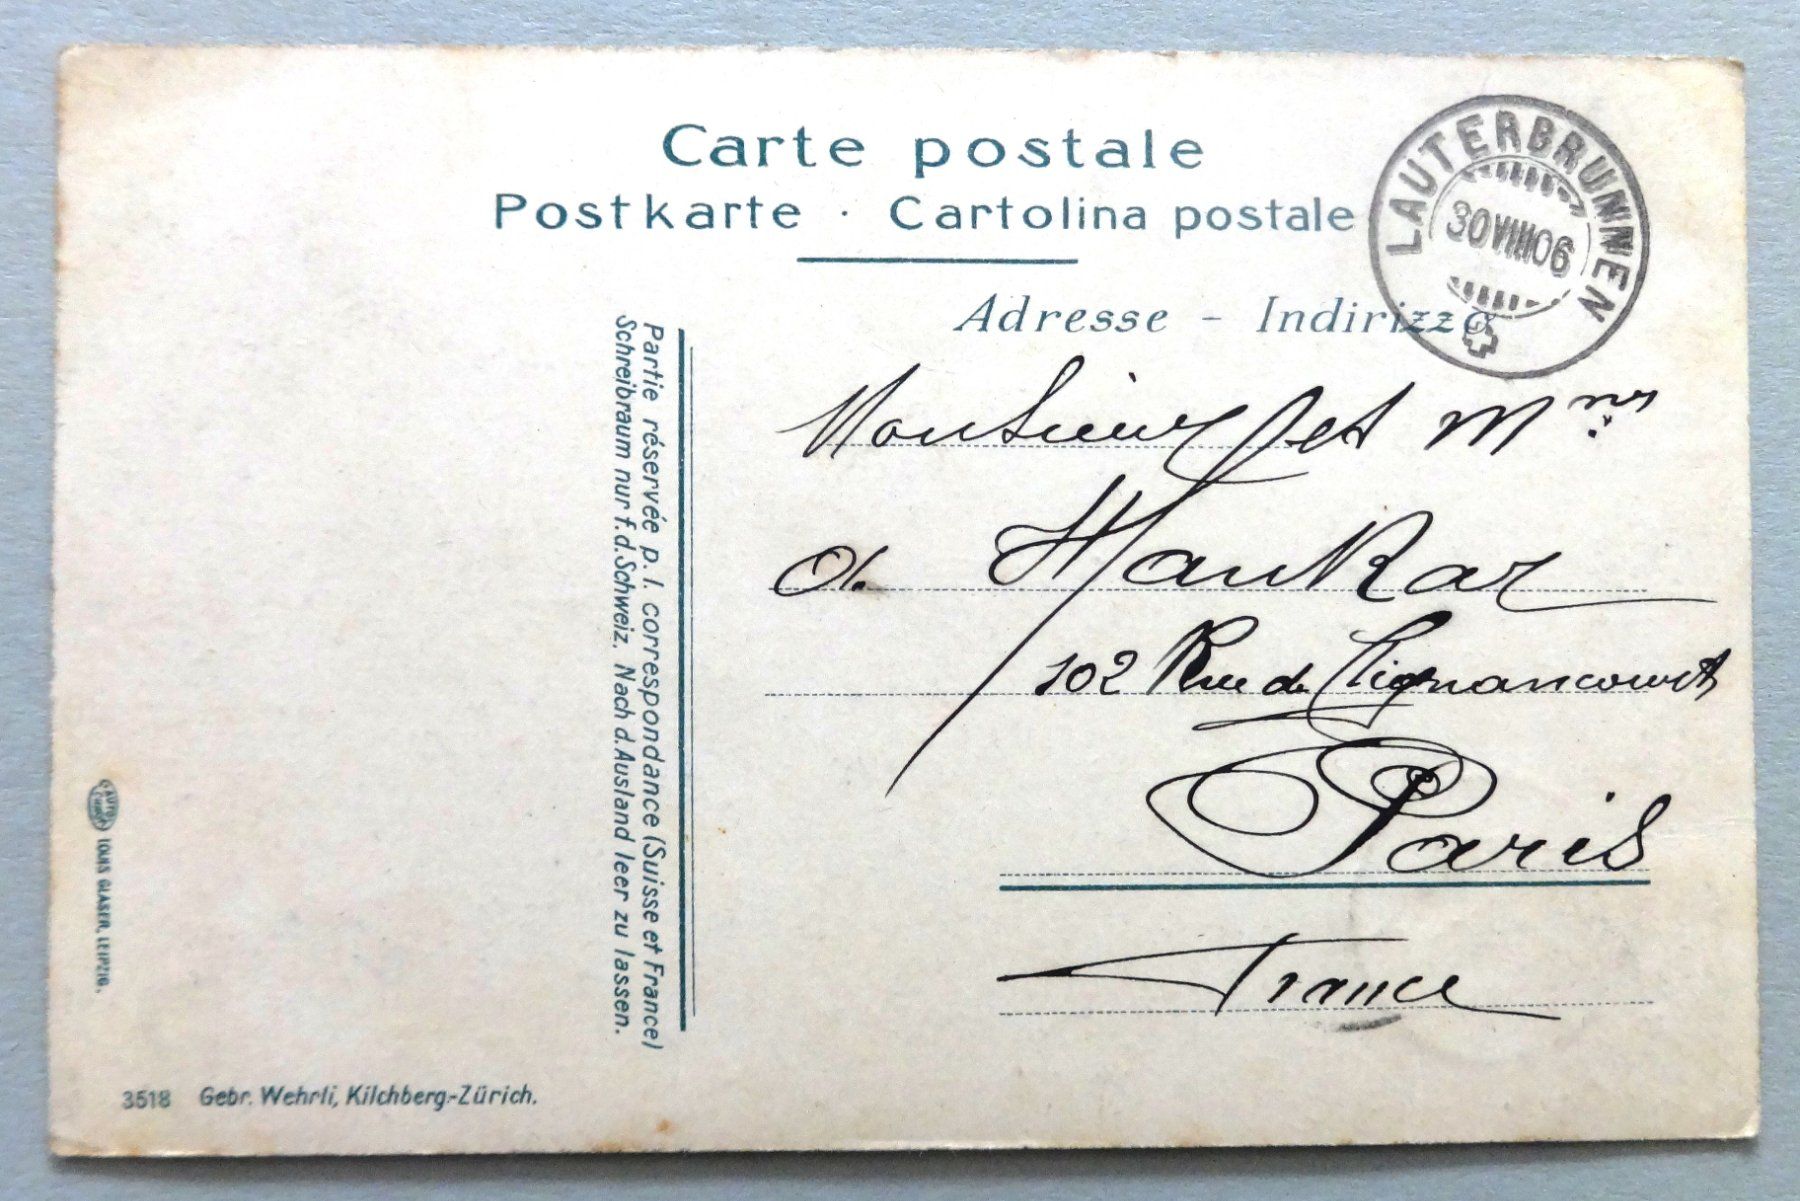 Carte postale
Postkarte · Cartolina postale
LAUTERBRUNNEN
30 VIII 06
Adresse - Indirizzo
Monsieur et Mmes
HauKar
102 Rue de Clignancourt
Paris
France
Partie réservée p. l. correspondance (Suisse et France)
Schreibraum nur f. d. Schweiz. Nach d. Ausland leer zu lassen.
AUTO
LOUIS GLASER, LEIPZIG.
3518 Gebr. Wehrli, Kilchberg-Zürich.